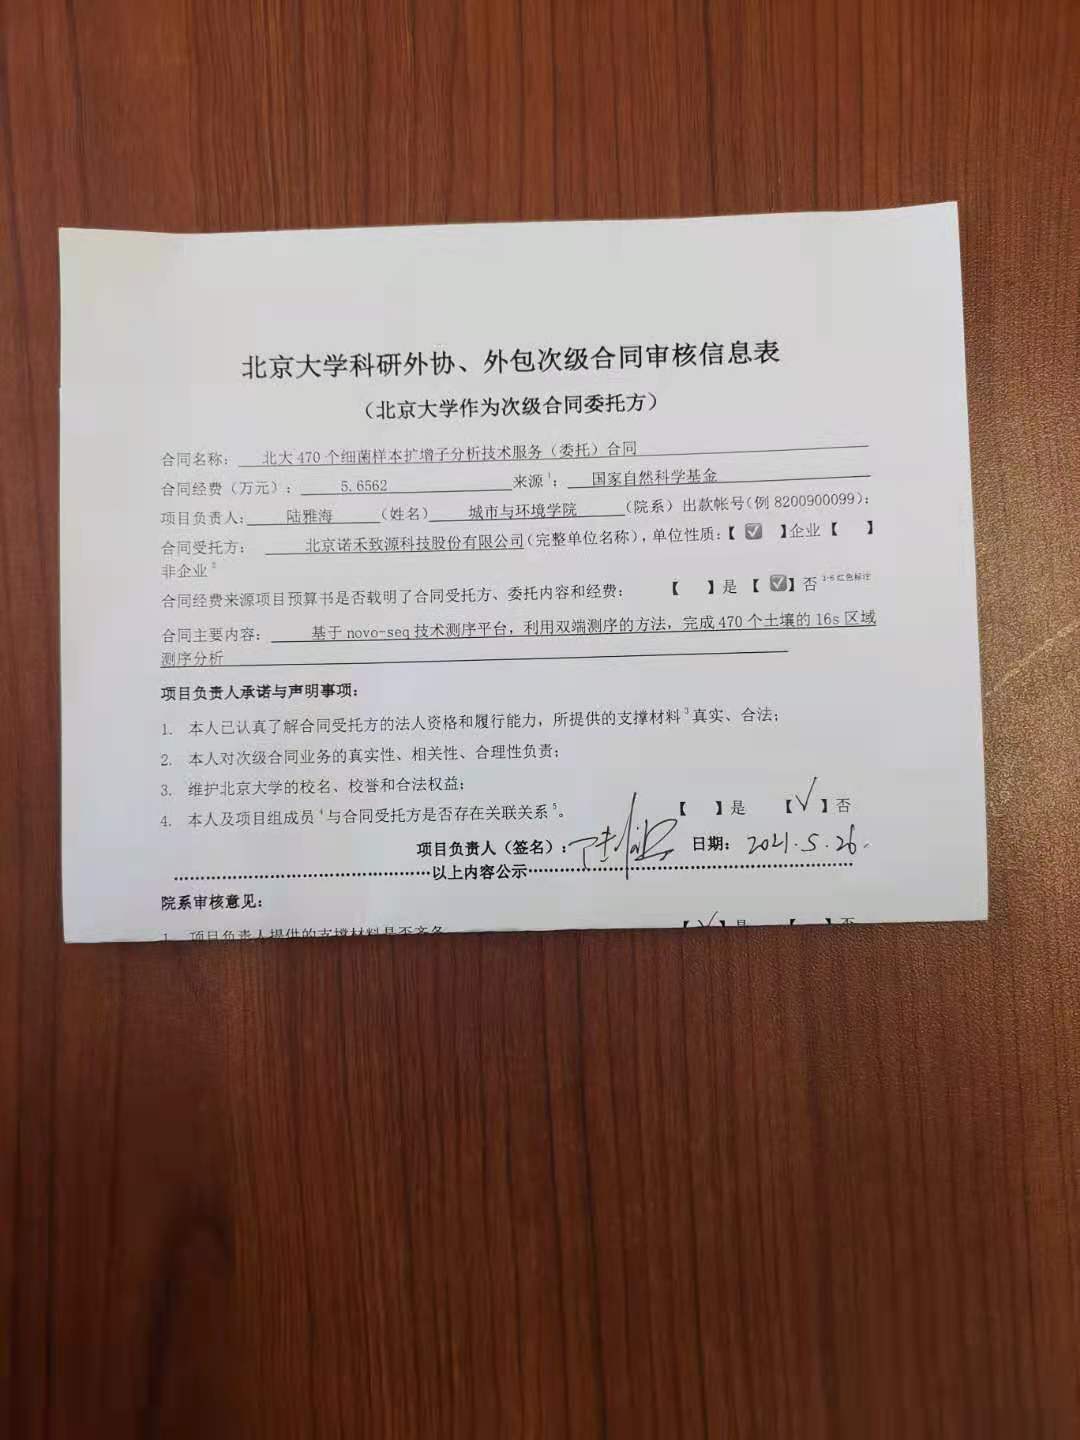 北京大学科研外协、外包次级合同审核信息表
（北京大学作为次级合同委托方）
合同名称： 北大 470 个细菌样本扩增子分析技术服务（委托）合同
合同经费（万元）： 5.6562 来源1： 国家自然科学基金
项目负责人： 陆雅海 （姓名） 城市与环境学院 （院系）出款帐号(例 8200900099)：
合同受托方： 北京诺禾致源科技股份有限公司(完整单位名称)，单位性质：【 ☑ 】企业【 】
非企业2
合同经费来源项目预算书是否载明了合同受托方、委托内容和经费： 【 】是 【 ☑】否 3-5 红色标注
合同主要内容： 基于 novo-seq 技术测序平台，利用双端测序的方法，完成 470 个土壤的 16s 区域
测序分析
项目负责人承诺与声明事项：
1. 本人已认真了解合同受托方的法人资格和履行能力，所提供的支撑材料3真实、合法；
2. 本人对次级合同业务的真实性、相关性、合理性负责；
3. 维护北京大学的校名、校誉和合法权益；
4. 本人及项目组成员4与合同受托方是否存在关联关系5。 【 】是 【√】否
项目负责人（签名）：陆雅海 日期： 2021.5.26.
以上内容公示
院系审核意见：
1. 项目负责人提供的支撑材料是否齐备 【√】是 【 】否